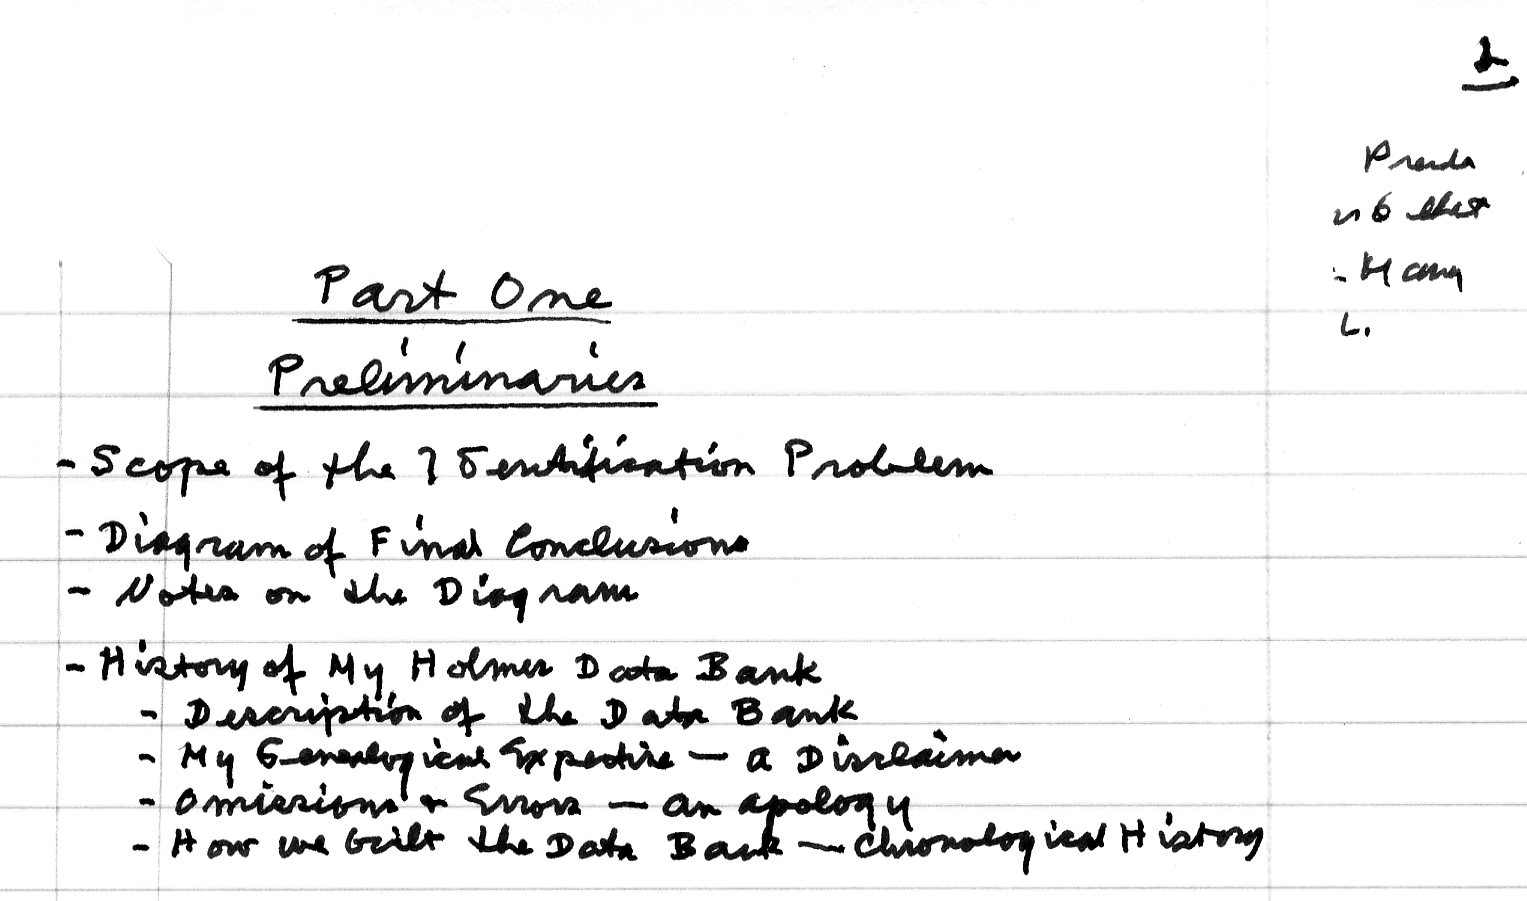 2
Part One
Preliminaries
- Scope of the Identification Problem
- Diagram of Final Conclusions
- Notes on the Diagram
- History of My Holmes Data Bank
- Description of the Data Bank
- My Genealogical Expertise — a Disclaimer
- Omissions & Errors — an apology
- How we built the Data Bank — Chronological History